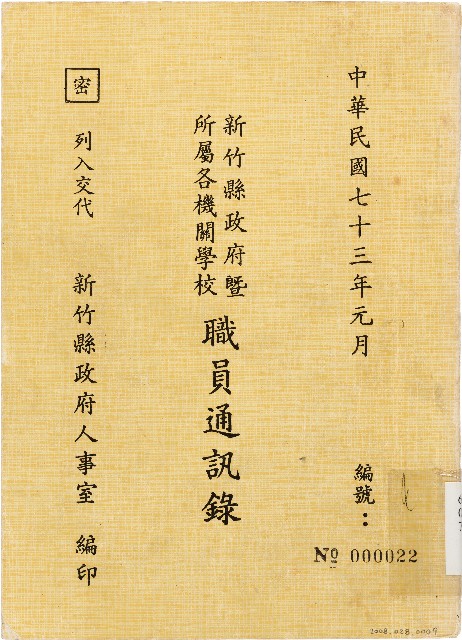 中華民國七十三年元月
編號：
Nº 000022
新竹縣政府暨
所屬各機關學校
職員通訊錄
密
列入交代
新竹縣政府人事室 編印
2008.028.0005